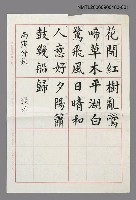 花開紅樹亂鶯
啼草木平湖白
鷺飛風日晴和
人意好夕陽簫
鼓幾船歸